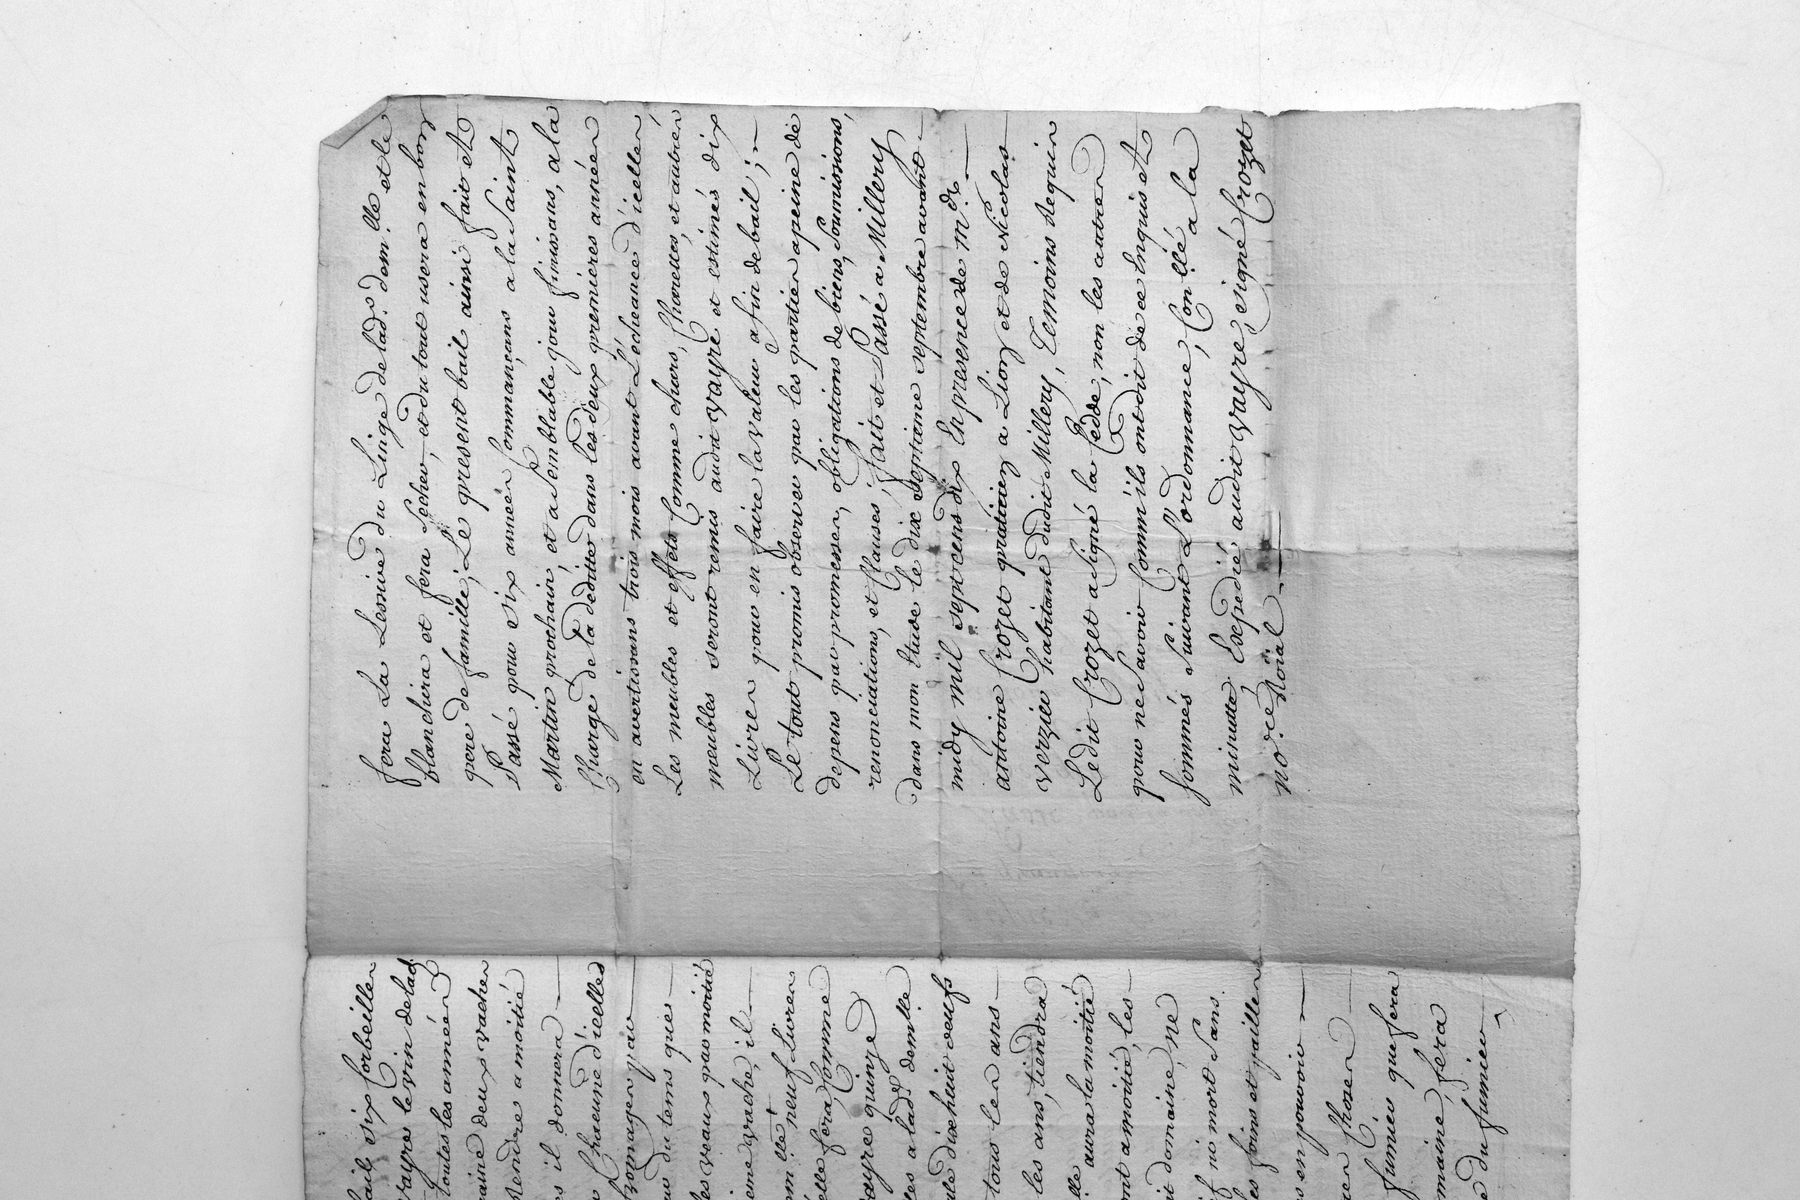 fera La Lessive du Linge de lad.e dem.lle et le
blanchira et fera secher, et du tout usera en bon
pere de famille; Le present bail ainsi fait et
Passé pour six année Commençans a la Saint
Martin prochain, et a Semblable jour finissans, a la
Charge de la deditte dans les deux premieres année
en avertissans trois mois avant L'écheance d'icelles
Les meubles et effets Comme chars, Charettes, et autres
meubles seront remis audit vayre et estimés dix
Livres pour en faire la valeur a fin de bail; —
Le tout promis observer par les parties a peine de
depens par promesses, obligations de biens, soumissions,
renonciations, et Clauses, fait et Passé a Millery
dans mon Etude le dix septieme septembre avant —
midy mil sept cens dix En presence de M.e —
antoine Crozet praticien a Lion et de Nicolas
verzieu habitant dudit Millery, Temoins Requis
Ledit Crozet a signé la Cedde, non les autres
pour ne sçavoir Comm'ils ont dit de ce Enquis et
sommés suivant L'ordonnance, Con.llé a la
minutte Expedié audit vayre, signé Crozet
no.re Roïal —
bail six Corbeilles
vayre le vin de lad.
toutes les années
deux vaches
Rendre a moitié
il donnera —
Chacune d'icelles
du tems que —
les veaux par moitié
vache, il —
neuf Livres
elle fera, Comme
vayre quinze
a lad.e demlle
dix huit oeufs
tous les ans —
les ans, tiendra
aura la moitié
a moitié, les —
domaine, ne
ni mort Sans.
foins et pailles
en pouvoir —
Chozes —
fumies que fera
fera
du fumier —